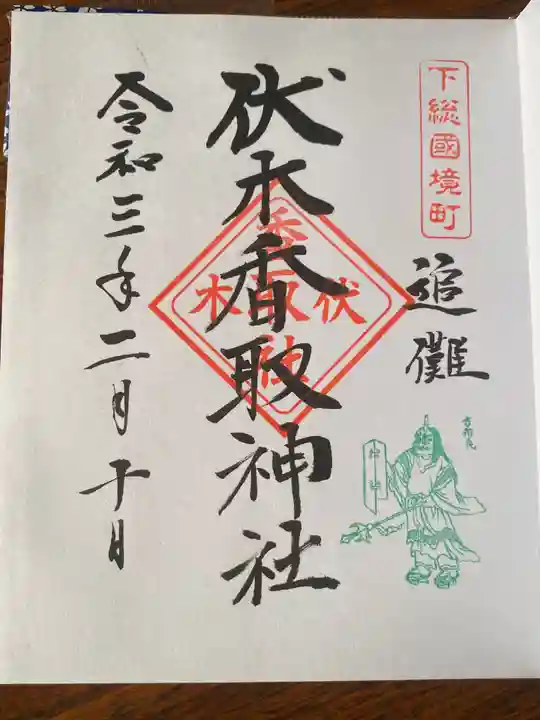 下総國境町
追儺
伏木香取神社
伏木
香取
社
令和三年二月十日